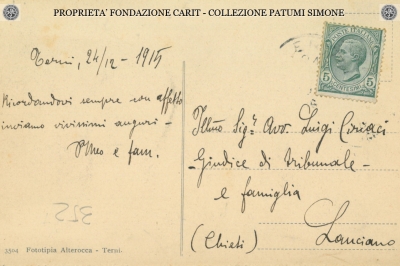 PROPRIETA' FONDAZIONE CARIT - COLLEZIONE PATUMI SIMONE
Terni, 24/12 - 1915
Ricordandovi sempre con affetto
inviamo vivissimi auguri -
e fam.
POSTE ITALIANE
5 5
Illmo Sigr Avv. Luigi Ciriaci
Giudice di tribunale -
e famiglia
(Chieti) Lanciano
352
3504 Fototipia Alterocca - Terni.